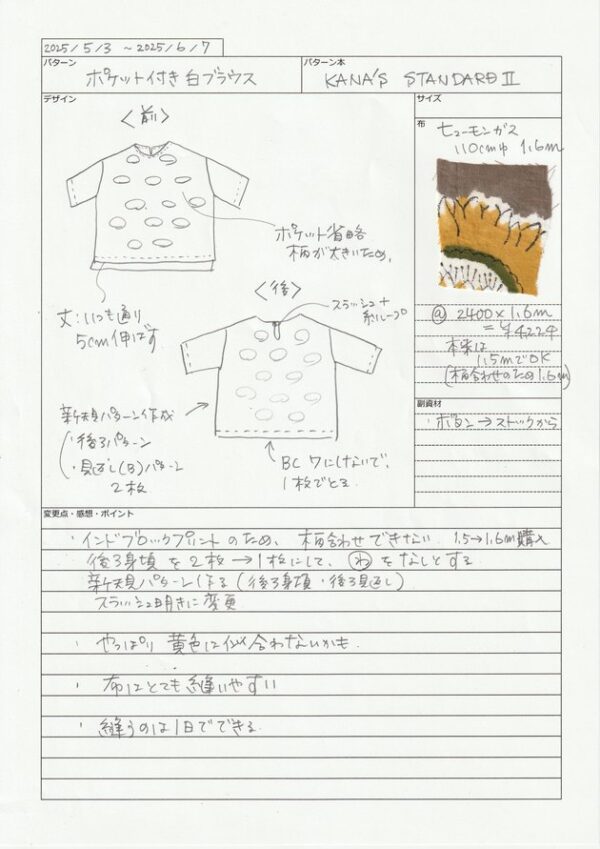 2025/5/3 ~2025/6/7
パターン
ポケット付き白ブラウス
パターン本
KANA'S STANDARD II
デザイン
〈前〉
ポケット省略
柄が大きいため、
丈:いつも通り
5cm伸ばす
〈後〉
スラッシュ+
糸ループ
新規パターン作成
・後ろパターン
・見返し(B)パターン
2枚
BC ワにしないで、
1枚でとる。
サイズ
布
ヒューモンガス
110cm巾 1.6m
@ 2400×1.6m
=¥4224
本来は
1.5mでOK
(柄合わせのため1.6m)
副資材
・ボタン→ストックから
変更点・感想・ポイント
・インドブロックプリントのため、柄合わせできない 1.5→1.6m購入
後ろ身頃を2枚→1枚にして、わをなしとする
新規パターン作る(後ろ身頃・後ろ見返し)
スラッシュ明きに変更
・やっぱり黄色は似合わないかも
・布はとても縫いやすい
・縫うのは1日でできる。